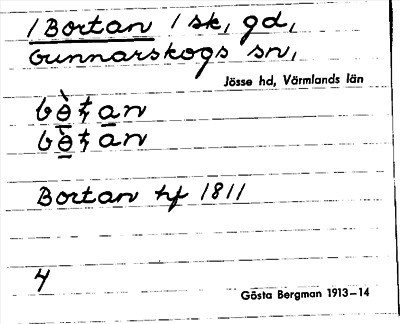 /Bortan / sk, gd,
Gunnarskogs sn,
Jösse hd, Värmlands län
Bortan hf 1811
4
Gösta Bergman 1913–14